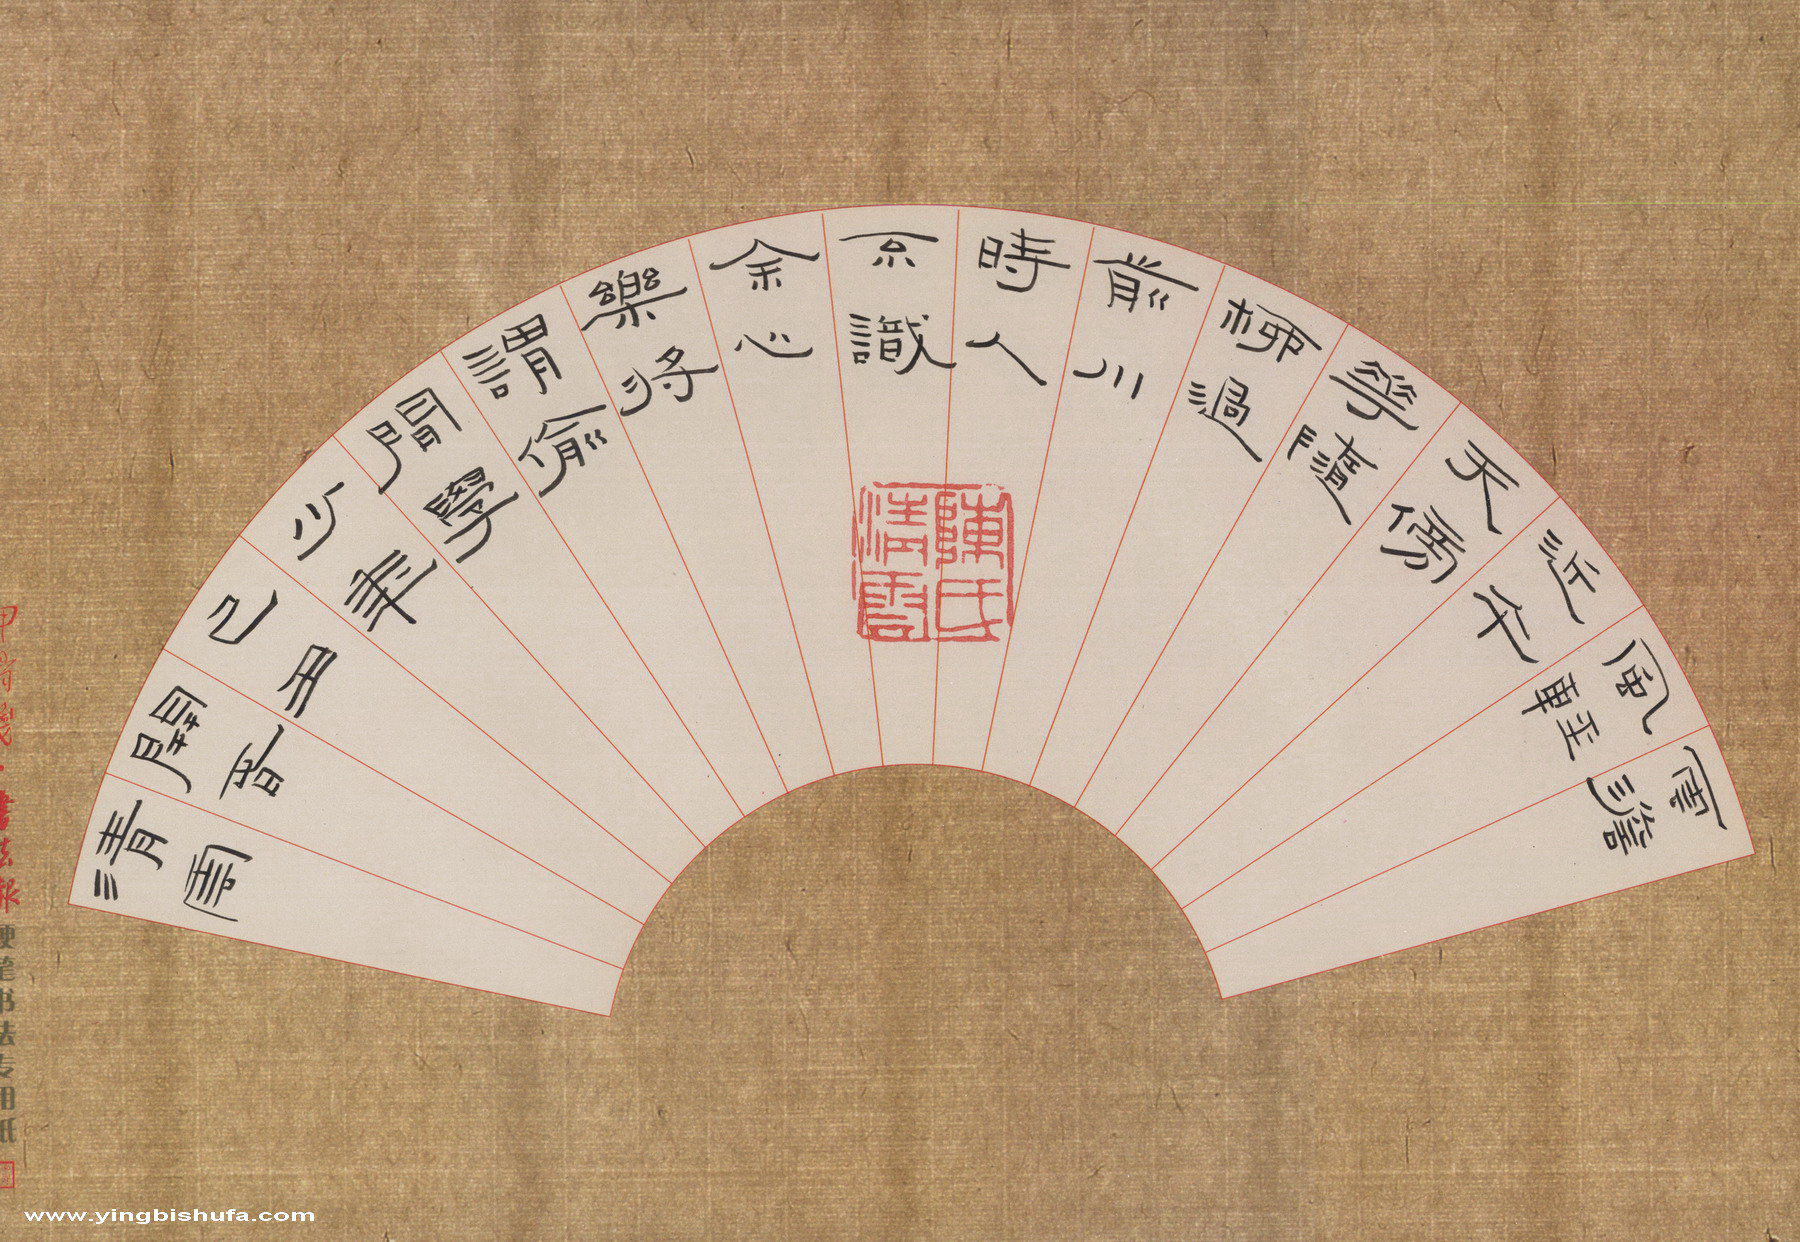 雲澹
風輕
近午
天傍
花隨
柳過
前川
時人
不識
余心
樂將
謂偷
閒學
少年
己丑
閏
清雲
陳氏清雲
書法報硬笔书法专用纸
www.yingbishufa.com